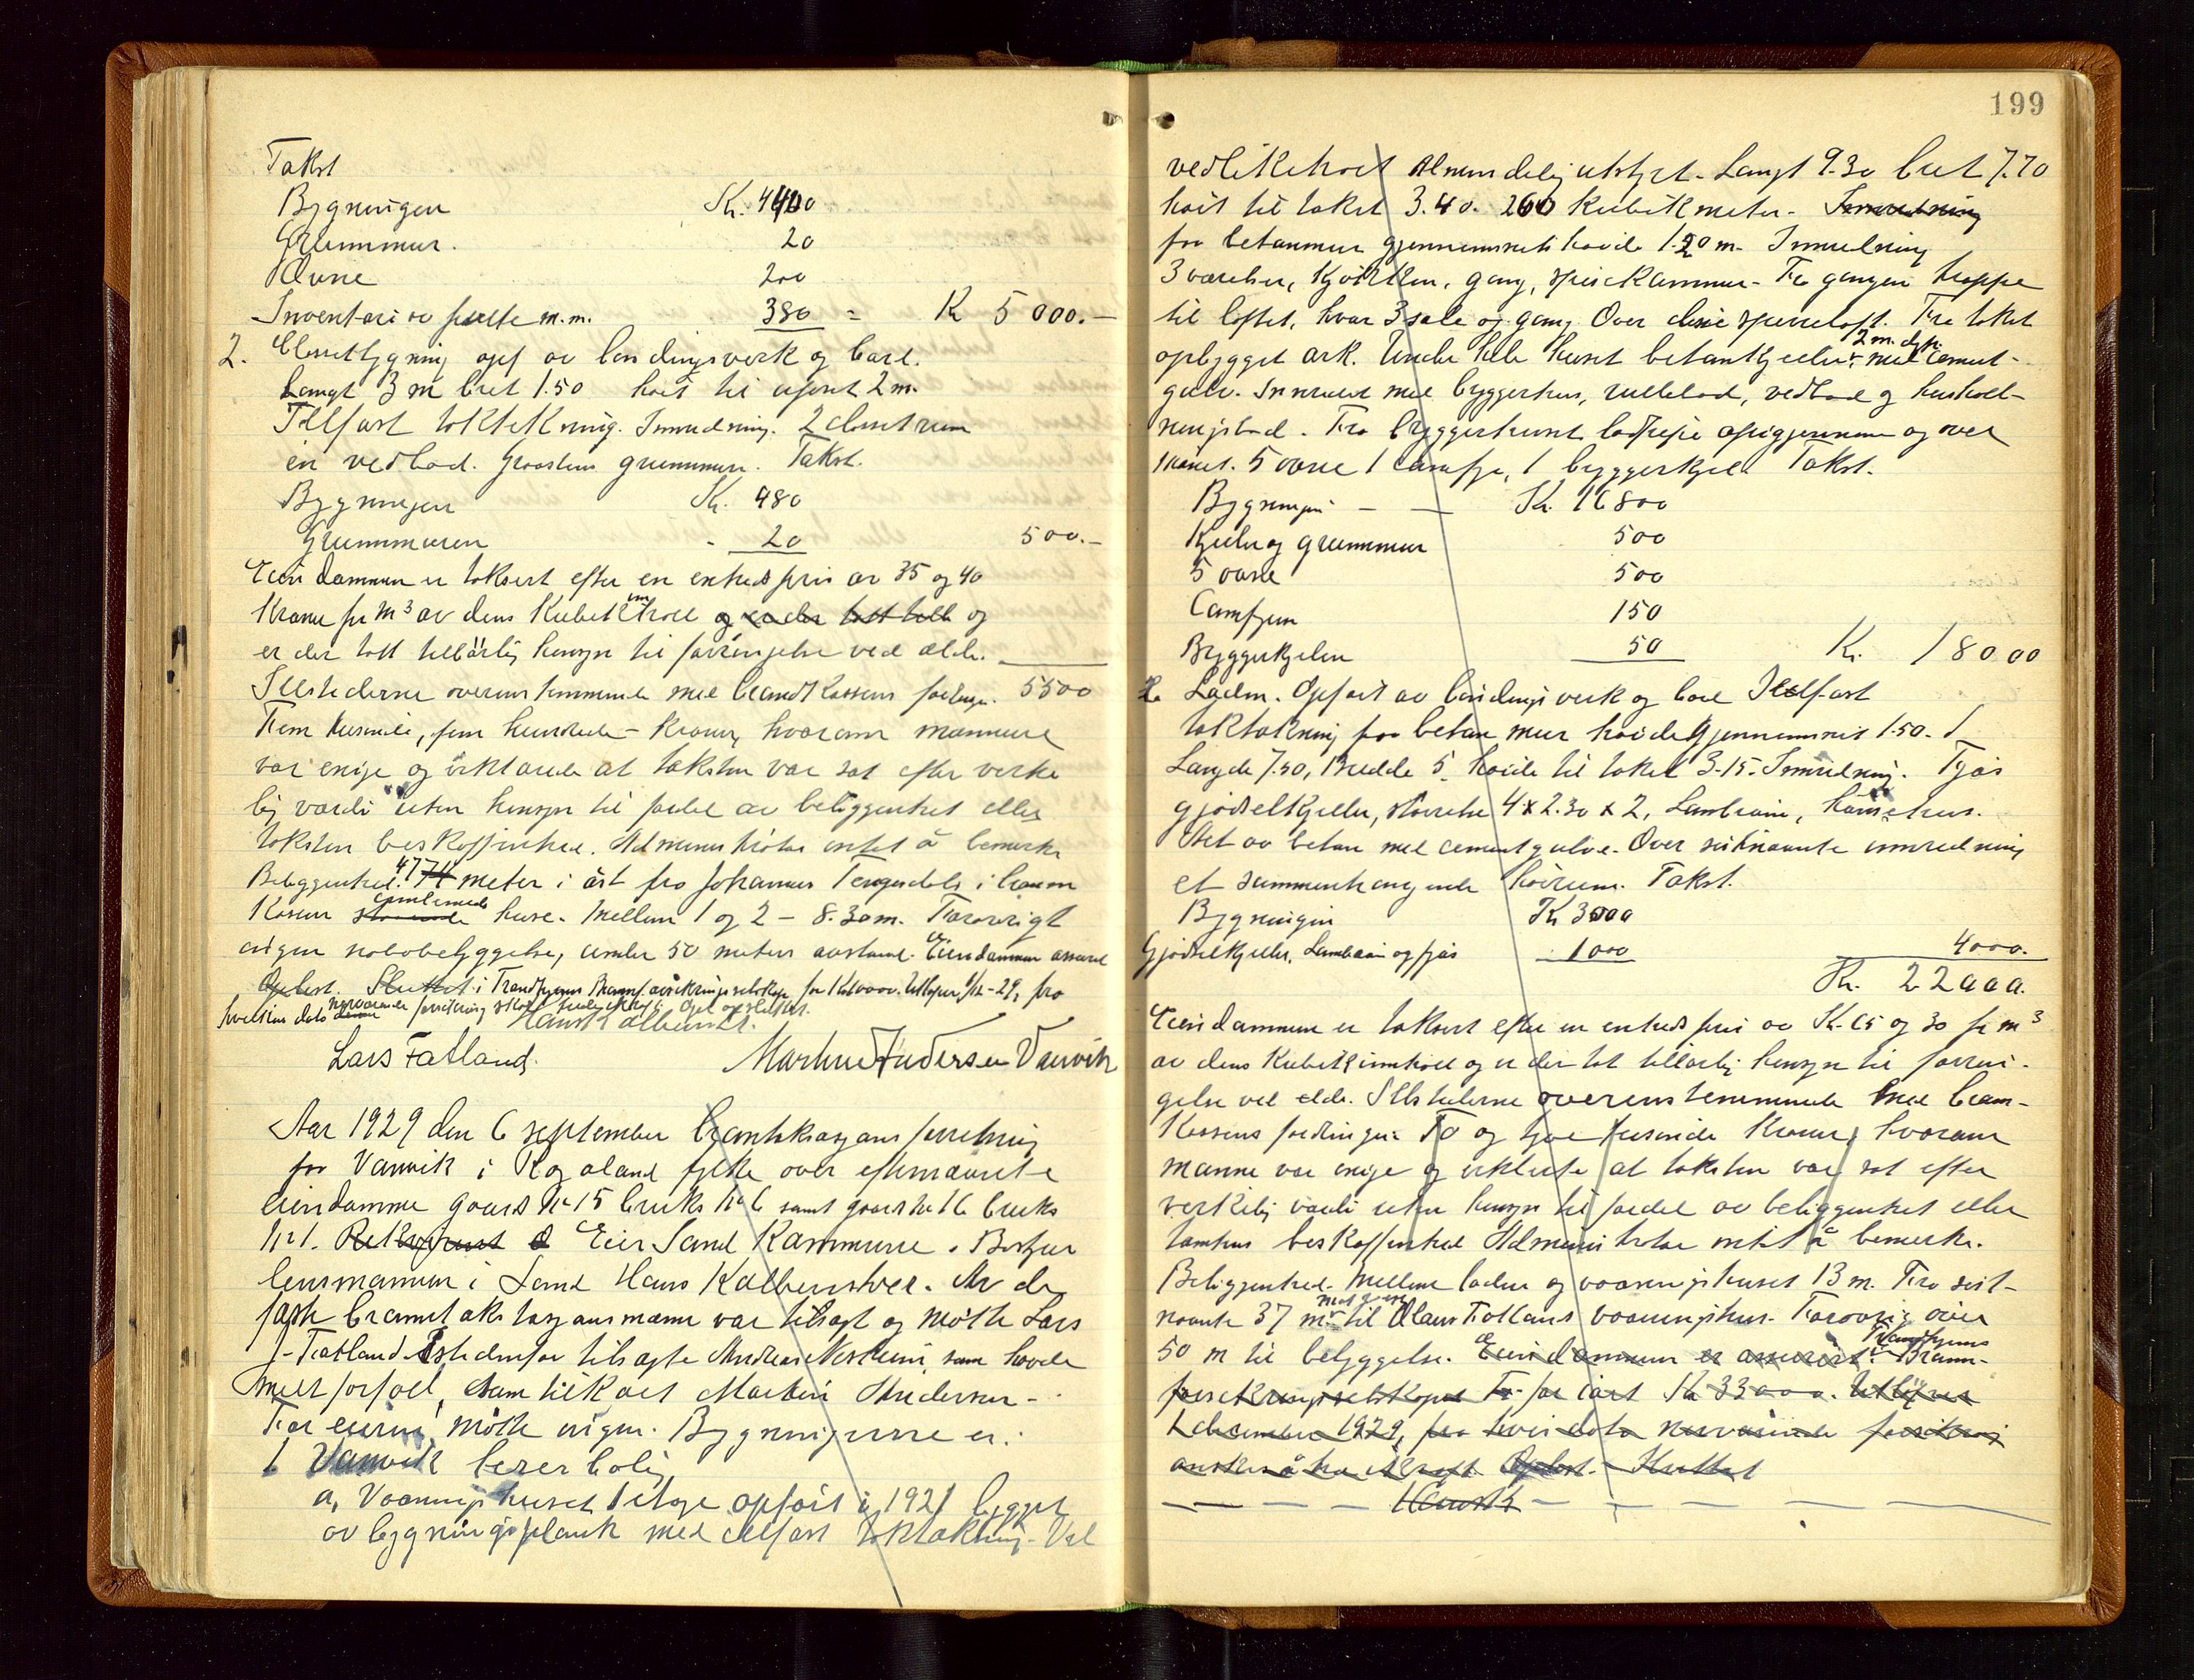 Takst
Bygningen Kr. 4400
Grunnmur. 20
Ovne 200
Inventar i m.m. 380 = K 5000.-
2. Closettbygning opf av bindingsverk og bord.
Langt 3 m bret 1.50 høit til ufset 2 m.
Illfast taktekning. Innredning. 2 closetrum
en vedbod. Graastens grunnmur. Takst.
Bygningen Kr. 480
Grunnmuren - 20 500.-
Eiendommen er taksert efter en enhedspris av 35 og 40
Krone pr m³ av dens Kubikinhold og er der tatt till og
er der tatt tilbørlig hensyn til forringelse ved elde.
Ildstederne overensstemmende med brandkassens fordringer. 5500
Fem tusinde, fem hundrede - kroner, hvorom mænnene
var enige og erklærede at taksten var sat efter verke
lig værdi uten hensyn til fordel av beliggenhet eller
taksten beskaffenhed. Administrator intet å bemerke
Beliggenhed. 47 74 meter i øst fra Johannes Tengesdals i brann
Kassen staaende omlemede huse. Mellem 1 og 2 - 8.30 m. Forøvrigt
ingen nabobebyggelse, under 50 meters avstand. Eiendommen assurert
Oplest. Sluttet i Trondhjems Brannforsikringsselskap for Kr 10000. Utløper 1/12-29, fra
hvilken dato denne nærværende forsikring skal træde i kraft. Opl og sluttet.
Hans Kolbenstvedt.
Lars Fatland. Martin Andersen Vanvik
Aar 1929 den 6 september branntaksasjonsforretning
for Vanvik i Rogaland fylke over efternævnte
eiendomme gaards Nr 15 bruks Nr 6 samt gaards Nr 16 bruks
Nr 1. Rekvirent O Eier Sand Kommune. Bestyrer
lensmannen i Sand Hans Kolbenstvedt. Av de
faste branntakstasjonsmænn var tilsagt og møtte Lars
J. Fatland. Istedenfor tilsagte Andreas Nesheim, som havde
meldt forfall, som tilkalt Martin Andersen -
For eieren møtte ingen. Bygningerne er:
1 Vanvik lærerbolig
a, Vaaningshuset 1 etage opført i 1921 bygget
av bygningsplank med illfast taktekning. Vel
199
vedlikeholt Almindelig utstyrt. Langt 9.30 bret 7.70
høit til taket 3.40. 260 Kubikmeter. Innredning
paa betonmur gjennemsnits høide 1.20 m. Innredning
3 værelser, Kjøkken, gang, spiskammer. Fra gangen trappe
til loftet, hvor 3 sale og gang Over disse sperreloft. Fra taket
opbygget ark. Under hele huset betonkjeller, 2 m. dyp. med cement-
gulv. Innredet med bryggerhus, rullebod, vedbod og hushold-
ningsbod. Fra bryggerhuset ladpipe opigjennem og over
mønet. 5 ovne 1 comfyr, 1 bryggerkjel. Takst.
Bygningen - - Kr. 16800
Kjeller og grunnmur 500
5 ovne 500
Comfyren 150
Bryggerkjelen 50 Kr. 18000
2 Laden. Opført av bindingsverk og bord Illfast
taktekning paa beton mur høide gjennemsnit 1.50.
Længde 7.50, Bredde 5, høide til taket 3.15. Innredning. Fjøs
gjødselkjeller, størrelse 4 x 2.30 x 2, Landrain, hønsehus.
Alt av beton med cementgulve. Over sistnævnte innredning
et sammenhængende høirum. Takst.
Bygningen Kr 3000
Gjødselkjeller, Landrain og fjøs 1000 4000.
Kr. 22000.
Eiendommene er taksert efter en enhedspris av Kr. 65 og 30 pr m³
av dens Kubikinnhold og er der tat tilbørlig hensyn til forrin-
gelse ved elde. Ildstederne overensstemmende med brann-
kassens fordringer To og tyve tusinde Kroner, hvorom
mænne var enige og erklærte at taksten var sat efter
verkelig værdi uten hensyn til fordel av beliggenhet eller
tomtens beskaffenhed Administrator intet å bemerke.
Beliggenhed. Mellem laden og vaaningshuset 13 m. Fra sist-
nævnte 37 m. til Olaus Fatlands vaaningshus. Forøvrig over
50 m til bebyggelse. Eiendommen er assurert i Trondhjems Brann-
forsikringsselskap for iørt Kr 33000. Utløper
1 december 1929, fra hvis dato nærværende forsikring
ønskes å ha Kraft. Oplest. - Sluttet
Hans K